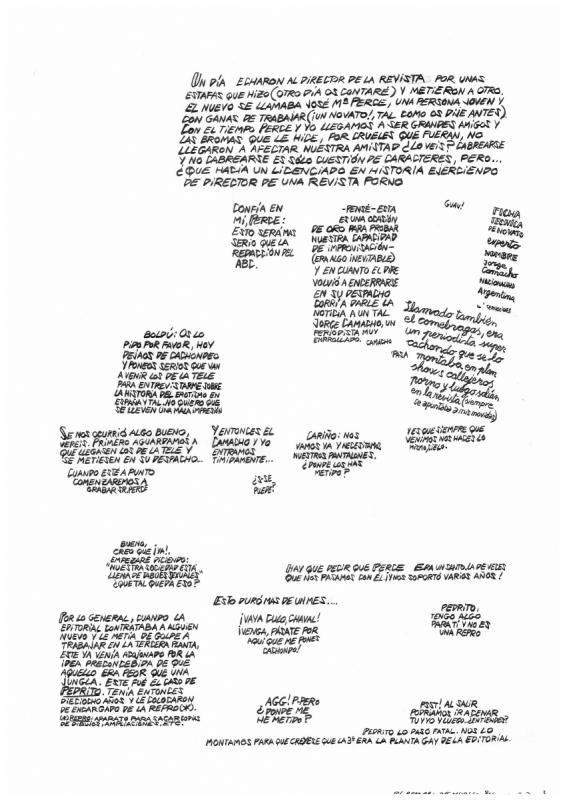 UN DÍA ECHARON AL DIRECTOR DE LA REVISTA POR UNAS
ESTAFAS QUE HIZO (OTRO DÍA OS CONTARÉ) Y METIERON A OTRO.
EL NUEVO SE LLAMABA JOSÉ Mª PERCE, UNA PERSONA JOVEN Y
CON GANAS DE TRABAJAR (¡UN NOVATO!, TAL COMO OS DIJE ANTES)
CON EL TIEMPO PERCE Y YO LLEGAMOS A SER GRANDES AMIGOS Y
LAS BROMAS QUE LE HICE, POR CRUELES QUE FUERAN, NO
LLEGARON A AFECTAR NUESTRA AMISTAD ¿LO VEIS? CABREARSE
Y NO CABREARSE ES SÓLO CUESTIÓN DE CARACTERES, PERO...
¿QUE HACÍA UN LICENCIADO EN HISTORIA EJERCIENDO
DE DIRECTOR DE UNA REVISTA PORNO
CONFÍA EN
MÍ, PERCE:
ESTO SERÁ MAS
SERIO QUE LA
REDACCIÓN DEL
ABC.
-PENSÉ- ESTA
ES UNA OCASIÓN
DE ORO PARA PROBAR
NUESTRA CAPACIDAD
DE IMPROVISACIÓN-
(ERA ALGO INEVITABLE)
Y EN CUANTO EL DIRE
VOLVIÓ A ENCERRARSE
EN SU DESPACHO
CORRÍ A DARLE LA
NOTICIA A UN TAL
JORGE CAMACHO, UN
PERIODISTA MUY
ENRROLLADO.
CAMACHO
GUAU!
FICHA
TECNICA
DE NOVATO
experto
NOMBRE
Jorge
Camacho
NACIONALIDAD
Argentina
Llamado también
el comebragas, era
un periodista super
cachondo que se lo
montaba en plan
shows callejeros
porno y luego salían
en la revista (siempre
se apuntaba a mis movidas)
PASA
BOLDÚ: OS LO
PIDO POR FAVOR, HOY
DEJAOS DE CACHONDEO
Y PONEOS SERIOS QUE VAN
A VENIR LOS DE LA TELE
PARA ENTREVISTARME SOBRE
LA HISTORIA DEL EROTISMO EN
ESPAÑA Y TAL. NO QUIERO QUE
SE LLEVEN UNA MALA IMPRESIÓN
SE NOS OCURRIÓ ALGO BUENO,
VERÉIS. PRIMERO AGUARDAMOS A
QUE LLEGASEN LOS DE LA TELE Y
SE METIESEN EN SU DESPACHO...
CUANDO ESTÉ A PUNTO
COMENZAREMOS A
GRABAR SR. PERCE
Y ENTONCES EL
CAMACHO Y YO
ENTRAMOS
TÍMIDAMENTE...
¿S-SE
PUEDE?
CARIÑO: NOS
VAMOS YA Y NECESITAMOS
NUESTROS PANTALONES.
¿DONDE LOS HAS
METIDO?
Y ES QUE SIEMPRE QUE
VENIMOS NOS HACES LO
MISMO, CIELO.
BUENO,
CREO QUE ¡YA!.
EMPEZARÉ DICIENDO:
"NUESTRA SOCIEDAD ESTÁ
LLENA DE TABUES SEXUALES"
¿QUE TAL QUEDA ESO?
HAY QUE DECIR QUE PERCE ERA UN SANTO. LA DE VECES
QUE NOS PASAMOS CON ÉL ¡Y NOS SOPORTÓ VARIOS AÑOS!
ESTO DURÓ MAS DE UN MES....
POR LO GENERAL, CUANDO LA
EDITORIAL CONTRATABA A ALGUIEN
NUEVO Y LE METÍA DE GOLPE A
TRABAJAR EN LA TERCERA PLANTA,
ESTE YA VENÍA ACOJONADO POR LA
IDEA PRECONCEBIDA DE QUE
AQUELLO ERA PEOR QUE UNA
JUNGLA. ESTE FUÉ EL CASO DE
PEDRITO. TENÍA ENTONCES
DIECIOCHO AÑOS Y LE COLOCARON
DE ENCARGADO DE LA REPRO (*).
(*) REPRO: APARATO PARA SACAR COPIAS
DE DIBUJOS, AMPLIACIONES, ETC.
¡VAYA CULO, CHAVAL!
¡VENGA, PÁSATE POR
AQUÍ QUE ME PONES
CACHONDO!
PEDRITO,
TENGO ALGO
PARA TÍ Y NO ES
UNA REPRO
AGG! P-PERO
¿DONDE ME
HE METIDO?
PSST! AL SALIR
PODRÍAMOS IR A CENAR
TU Y YO Y LUEGO.. ¿ENTIENDES?
PEDRITO LO PASÓ FATAL. NOS LO
MONTAMOS PARA QUE CREYESE QUE LA 3ª ERA LA PLANTA GAY DE LA EDITORIAL.